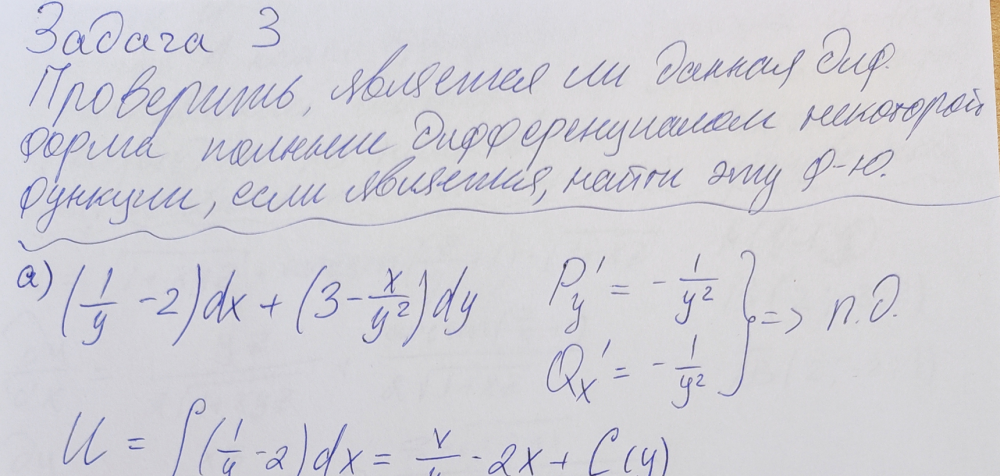 Задача 3
Проверить, является ли данная диф.
форма полным дифференциалом некоторой
функции, если является, найти эту ф-ю.
а) (1/y - 2)dx + (3 - x/y²)dy P'y = - 1/y² } => п.д.
Q'x = - 1/y²
U = ∫(1/y - 2)dx = x/y - 2x + C(y)